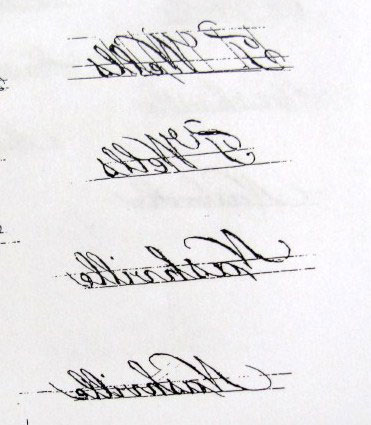 F Wells
F Wells
Nashville
Nashville